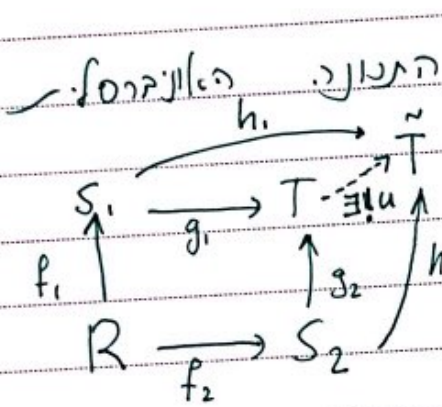 התכונה האוניברסלית
h₁ T̃
S₁ g₁ T ∃!u
f₁ g₂ h
R f₂ S₂